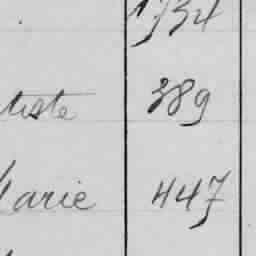 1734
tiste 389
Marie 447